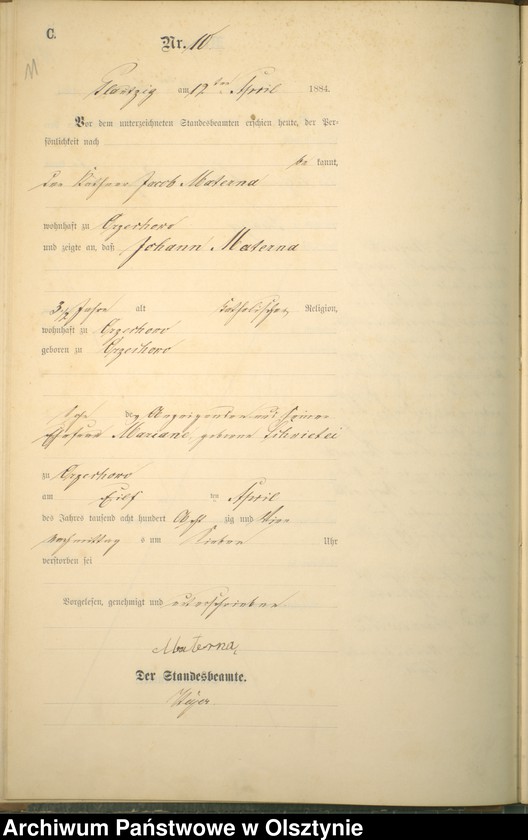 C.
Nr. 10
am 12ten April 1884.
Vor dem unterzeichneten Standesbeamten erschien heute, der Per-
sönlichkeit nach
be kannt,
der Käthner Jacob Materna
wohnhaft zu Orzechowo
und zeigte an, daß Johann Materna
3 1/2 Jahre alt katholischer Religion,
wohnhaft zu Orzechowo
geboren zu Orzechowo
Sohn des Anzeigenden und seiner
Ehefrau Mariane, geborene
zu Orzechowo
am Eilf ten April
des Jahres tausend acht hundert Acht zig und Vier
Nachmittag s um Sieben Uhr
verstorben sei
Vorgelesen, genehmigt und unterschrieben.
Materna,
Der Standesbeamte.
Archiwum Państwowe w Olsztynie